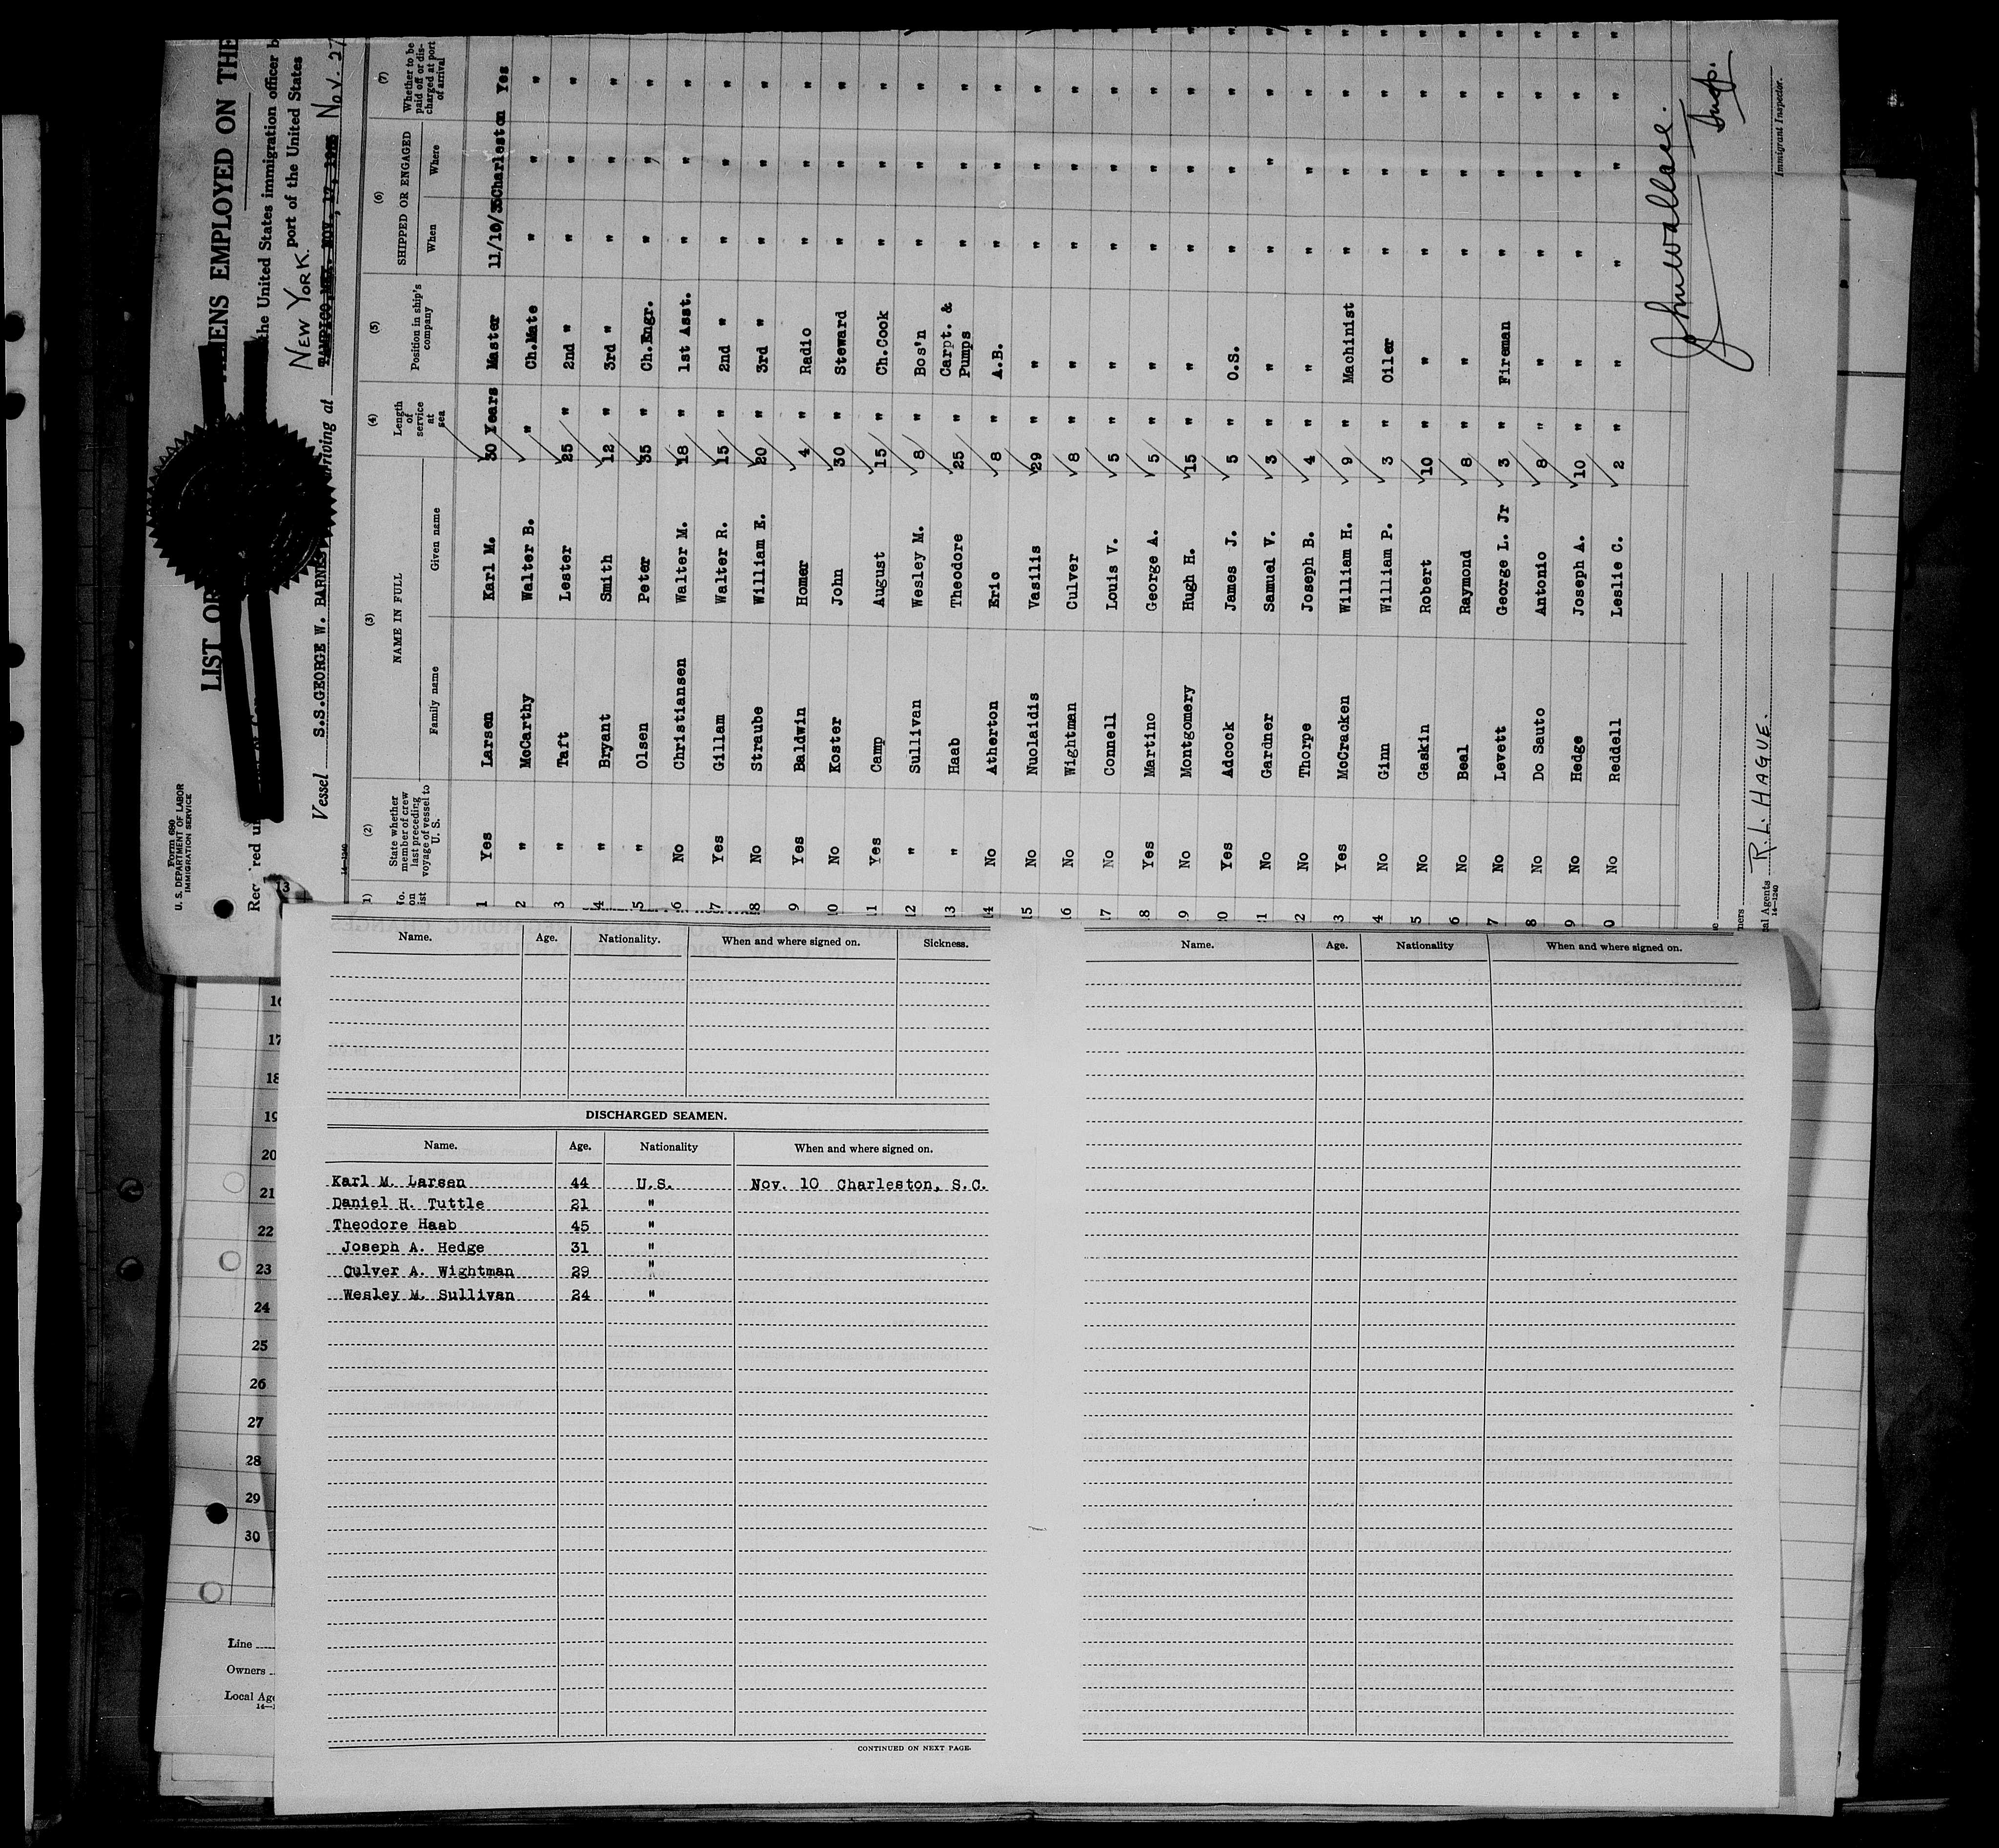 Form 680
U. S. DEPARTMENT OF LABOR
IMMIGRATION SERVICE
LIST OR
IENS EMPLOYED ON THE
the United States immigration officer b
port of the United States
NEW YORK.
Vessel S.S.GEORGE W. BARNES
arriving at TAMPICO,MEX. NOV. 17, Nov. 27
14—1240
(2) (3) (4) (5) (6) (7)
No. on list
State whether member of crew last preceding voyage of vessel to U. S.
NAME IN FULL
Family name Given name
Length of service at sea
Position in ship's company
SHIPPED OR ENGAGED
When Where
Whether to be paid off or discharged at port of arrival
1 Yes Larsen Karl M. 30 Years Master 11/10/35 Charleston Yes
2 " McCarthy Walter B. " Ch.Mate " " "
3 " Taft Lester 25 " 2nd " " " "
4 " Bryant Smith 12 " 3rd " " " "
5 " Olsen Peter 35 " Ch.Engr. " " "
6 No Christiansen Walter M. 18 " 1st Asst. " " "
7 Yes Gillam Walter R. 15 " 2nd " " " "
8 No Straube William E. 20 " 3rd " " " "
9 Yes Baldwin Homer 4 " Radio " " "
10 No Koster John 30 " Steward " " "
11 Yes Camp August 15 " Ch.Cook " " "
12 " Sullivan Wesley M. 8 " Bos'n " " "
13 " Haab Theodore 25 " Carpt. & Pumps " " "
14 No Atherton Eric 8 " A.B. " " "
15 No Nuolaidis Vasilis 29 " " " " "
16 No Wightman Culver 8 " " " " "
17 No Connell Louis V. 5 " " " " "
18 Yes Martino George A. 5 " " " " "
19 No Montgomery Hugh H. 15 " " " " "
20 Yes Adcock James J. 5 " O.S. " " "
21 No Gardner Samuel V. 3 " " " " "
2 No Thorpe Joseph B. 4 " " " " "
3 Yes McCracken William H. 9 " Machinist " " "
4 No Ginn William P. 3 " Oiler " " "
5 No Gaskin Robert 10 " " " " "
6 No Beal Raymond 8 " " " " "
7 No Levett George L. Jr 3 " Fireman " " "
8 No Do Sauto Antonio 8 " " " " "
9 No Hedge Joseph A. 10 " " " " "
0 No Reddell Leslie C. 2 " " " " "
John Wallace.
Insp.
Immigrant Inspector.
ners
cal Agents R. L. HAGUE.
14—1240
Name. Age. Nationality. When and where signed on. Sickness.
DISCHARGED SEAMEN.
Name. Age. Nationality When and where signed on.
Karl M. Larsen 44 U.S. Nov. 10 Charleston, S.C.
Daniel H. Tuttle 21 "
Theodore Haab 45 "
Joseph A. Hedge 31 "
Culver A. Wightman 29 "
Wesley M. Sullivan 24 "
CONTINUED ON NEXT PAGE.
Name. Age. Nationality When and where signed on.
16
17
18
19
20
21
22
23
24
25
26
27
28
29
30
Line
Owners
Local Age
14—1